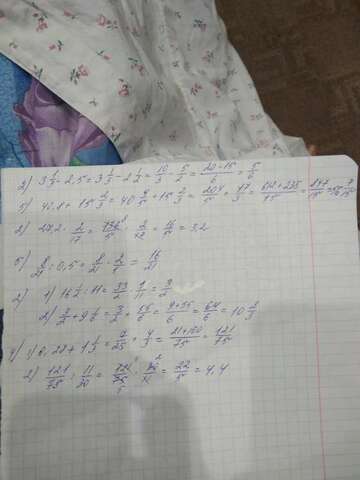 а) 3 1/3 - 2,5 = 3 1/3 - 2 1/2 = 10/3 - 5/2 = 20-15/6 = 5/6
б) 40,8 + 15 2/3 = 40 4/5 + 15 2/3 = 204/5 + 47/3 = 612+235/15 = 847/15 = 56 7/15
2/17 = 136/5 · 2/17 = 16/5 = 3,2
б) 8/21 : 0,5 = 8/21 · 2/1 = 16/21
1) 16 1/2 : 11 = 33/2 · 1/11 = 3/2
2) 3/2 + 9 1/6 = 3/2 + 55/6 = 9+55/6 = 64/6 = 10 2/3
1) 0,28 + 1 1/3 = 7/25 + 4/3 = 21+100/75 = 121/75
2) 121/75 : 11/30 = 121/75 · 30/11 = 22/5 = 4,4